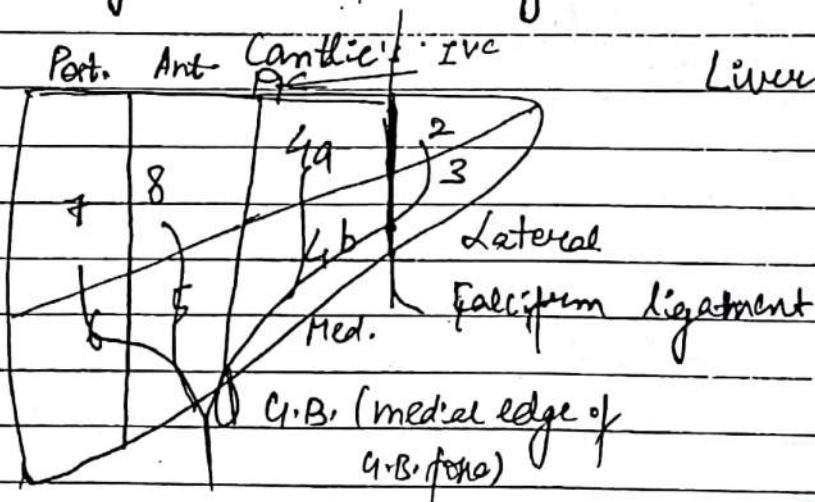 Post. Ant. Cantlie's IVC
Liver
2
4a
3
8
7
4b
Lateral
5
Falciform ligament
6
Med.
G.B. (medial edge of
G.B. fossa)